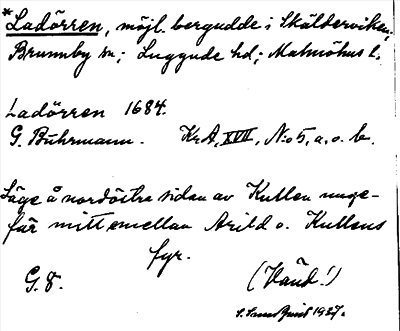 *Ladörren, möjl. bergudde i Skälderviken,
Brunnby sn; Luggude hd; Malmöhus l.
Ladörren 1684.
G. Buhrmann. Kr.A, XVII, No 5, a, o. b.
Läge å nordöstra sidan av Kullen unge-
fär mitt emellan Arild o. Kullens
fyr.
G. 8. (Händ!)
1937.